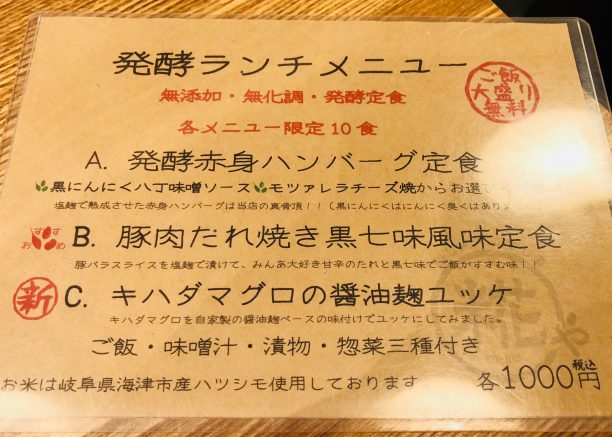 発酵ランチメニュー
無添加・無化調・発酵定食
ご飯
大盛り
無料
各メニュー限定10食
A. 発酵赤身ハンバーグ定食
黒にんにく八丁味噌ソース モツァレラチーズ焼からお選び
塩麹で熟成させた赤身ハンバーグは当店の真骨頂!!(黒にんにくはにんにく臭くはありま
おすすめ
B. 豚肉だれ焼き黒七味風味定食
豚バラスライスを塩麹で漬けて、みんあ大好き甘辛のたれと黒七味でご飯がすすむ味!!
新
C. キハダマグロの醤油麹ユッケ
キハダマグロを自家製の醤油麹ベースの味付けでユッケにしてみました。
ご飯・味噌汁・漬物・惣菜三種付き
お米は岐阜県海津市産ハツシモ使用しております
各1000円
税込